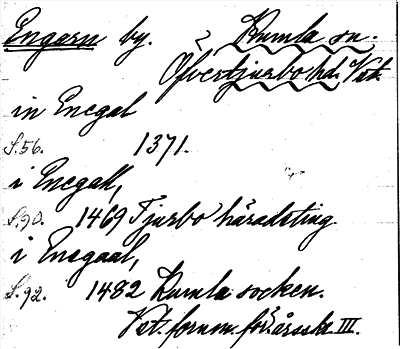 Engarn by. 2 Kumla sn.
Öfvertjurbo hd. Vst.
in Enegal
S.56. 1371.
i Enegall,
S.90. 1469 Tjurbo häradsting.
i Enegaal,
S.92. 1482 Kumla socken.
Vst. fornm. för. årsskr. III.